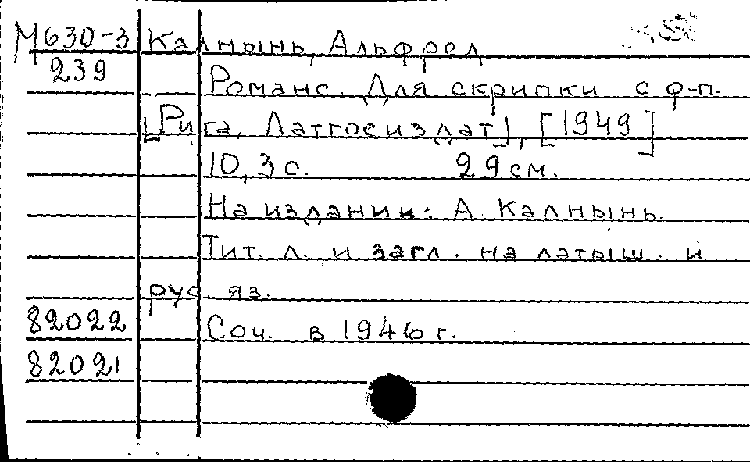 М630-3 Калнынь, Альфред
239 Романс. Для скрипки с ф-п.
[Рига, Латгосиздат], [1949]
10, 3 с. 29 см.
На издании: А. Калнынь.
Тит. л. и загл. на латыш. и
рус яз.
82022 Соч. в 1946 г.
82021